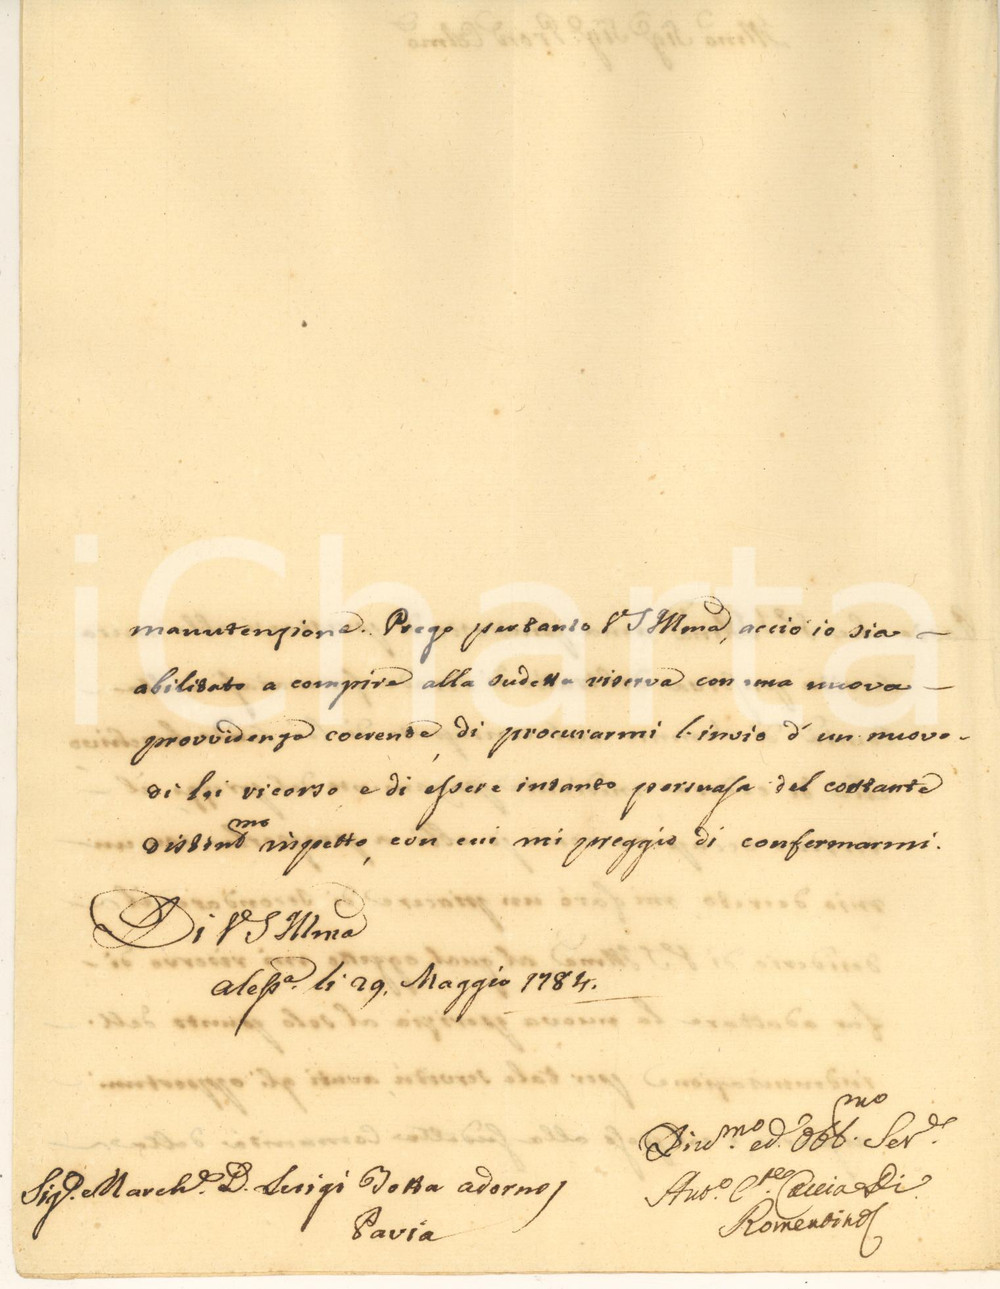 manutenzione. Prego pertanto V S Illma, acciò io sia
abilitato a compire alla sudetta riserva con una nuova
provvidenza coerente, di procurarmi l'invio d'un nuovo
di lei ricorso e di essere intanto persuasa del costante
distintmo rispetto, con cui mi preggio di confermarmi.
Di V S Illma
Alessa. li 29. Maggio 1784.
Divmo. ed obbmo. Serve.
Sige. Marche. D. Luigi Botta adorno
Anto. Cte. Caccia Di
Pavia
Romentino
iCharta